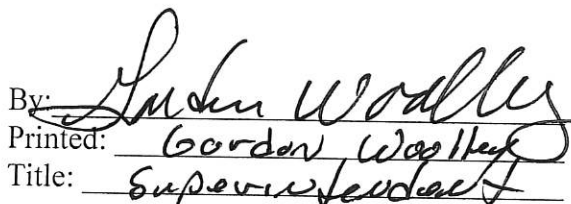 By: Gordon Woolley
Printed: Gordon Woolley
Title: Superintendent